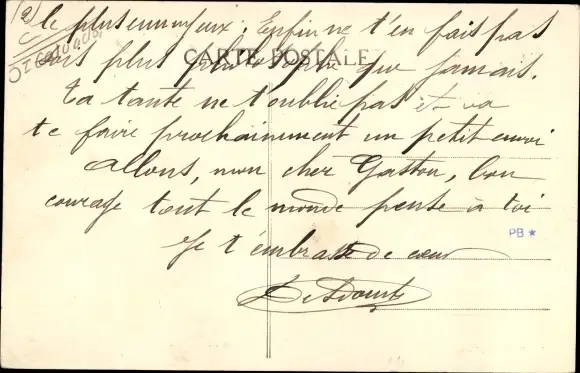 le plus ennuyeux; Enfin ne t'en fais pas
CARTE POSTALE
plus que jamais.
Ta tante ne t'oublie pas et va
te faire prochainement un petit envoi
Allons, mon cher Gaston, bon
courage tout le monde pense à toi
Je t'embrasse de cœur
PB ★